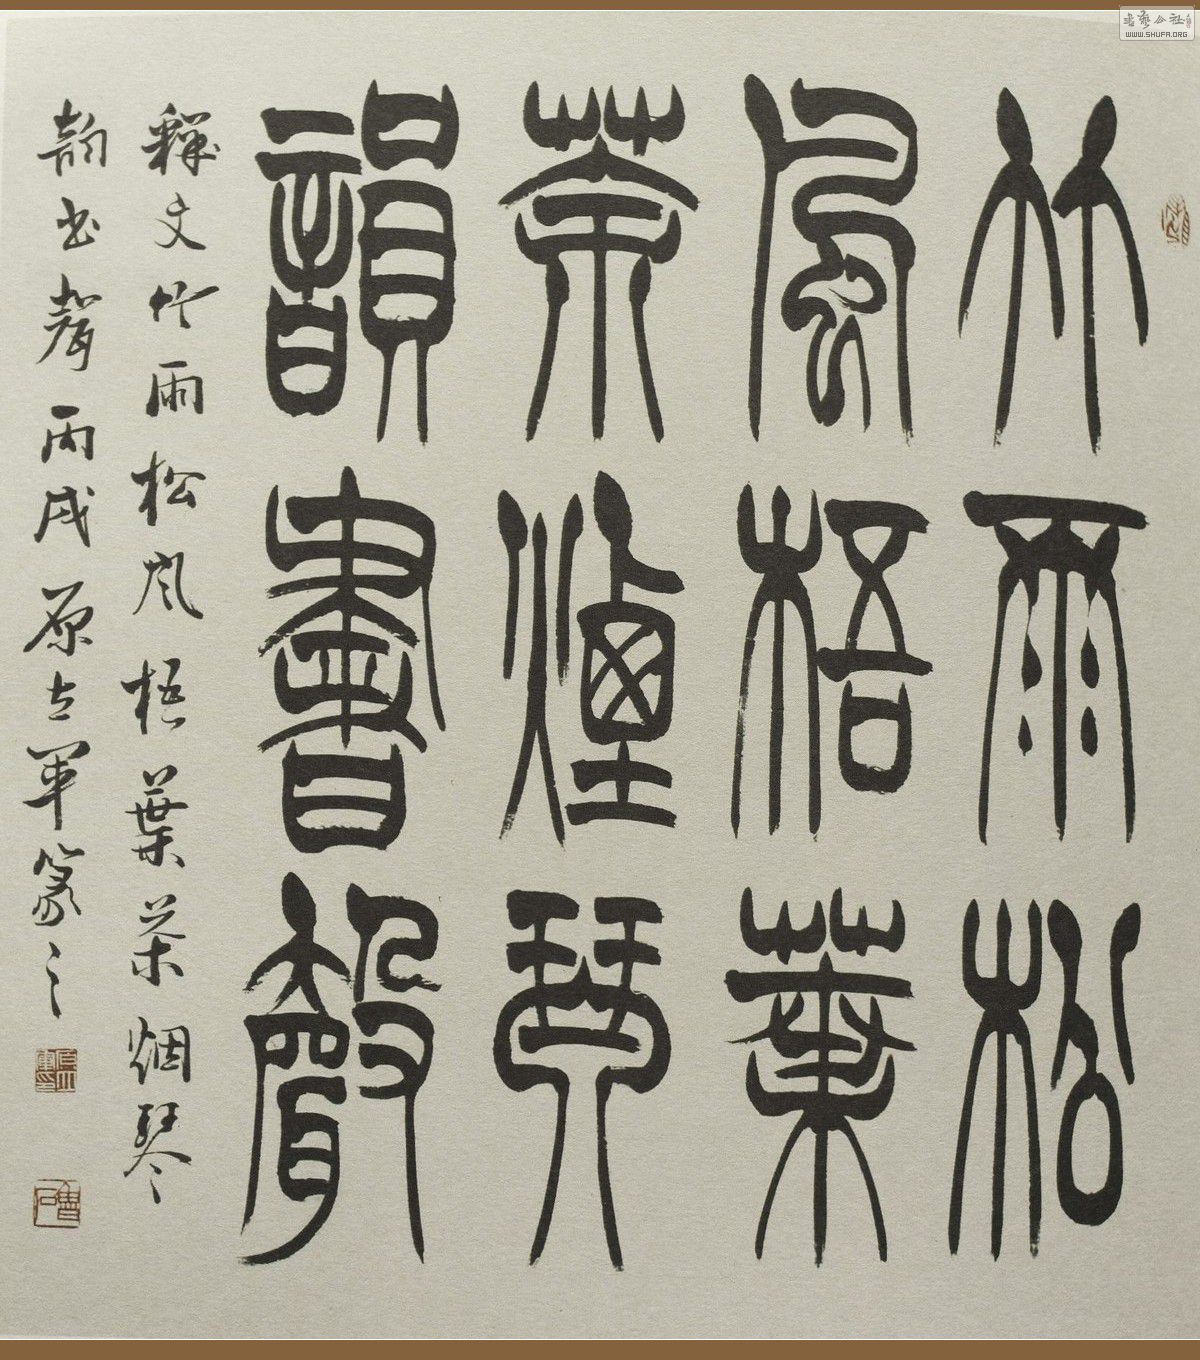 竹雨松
風梧葉
茶煙琴
韻書聲
釋文竹雨松風梧葉茶烟琴
韵书聲丙戌原立軍篆之
WWW.SHUFA.ORG